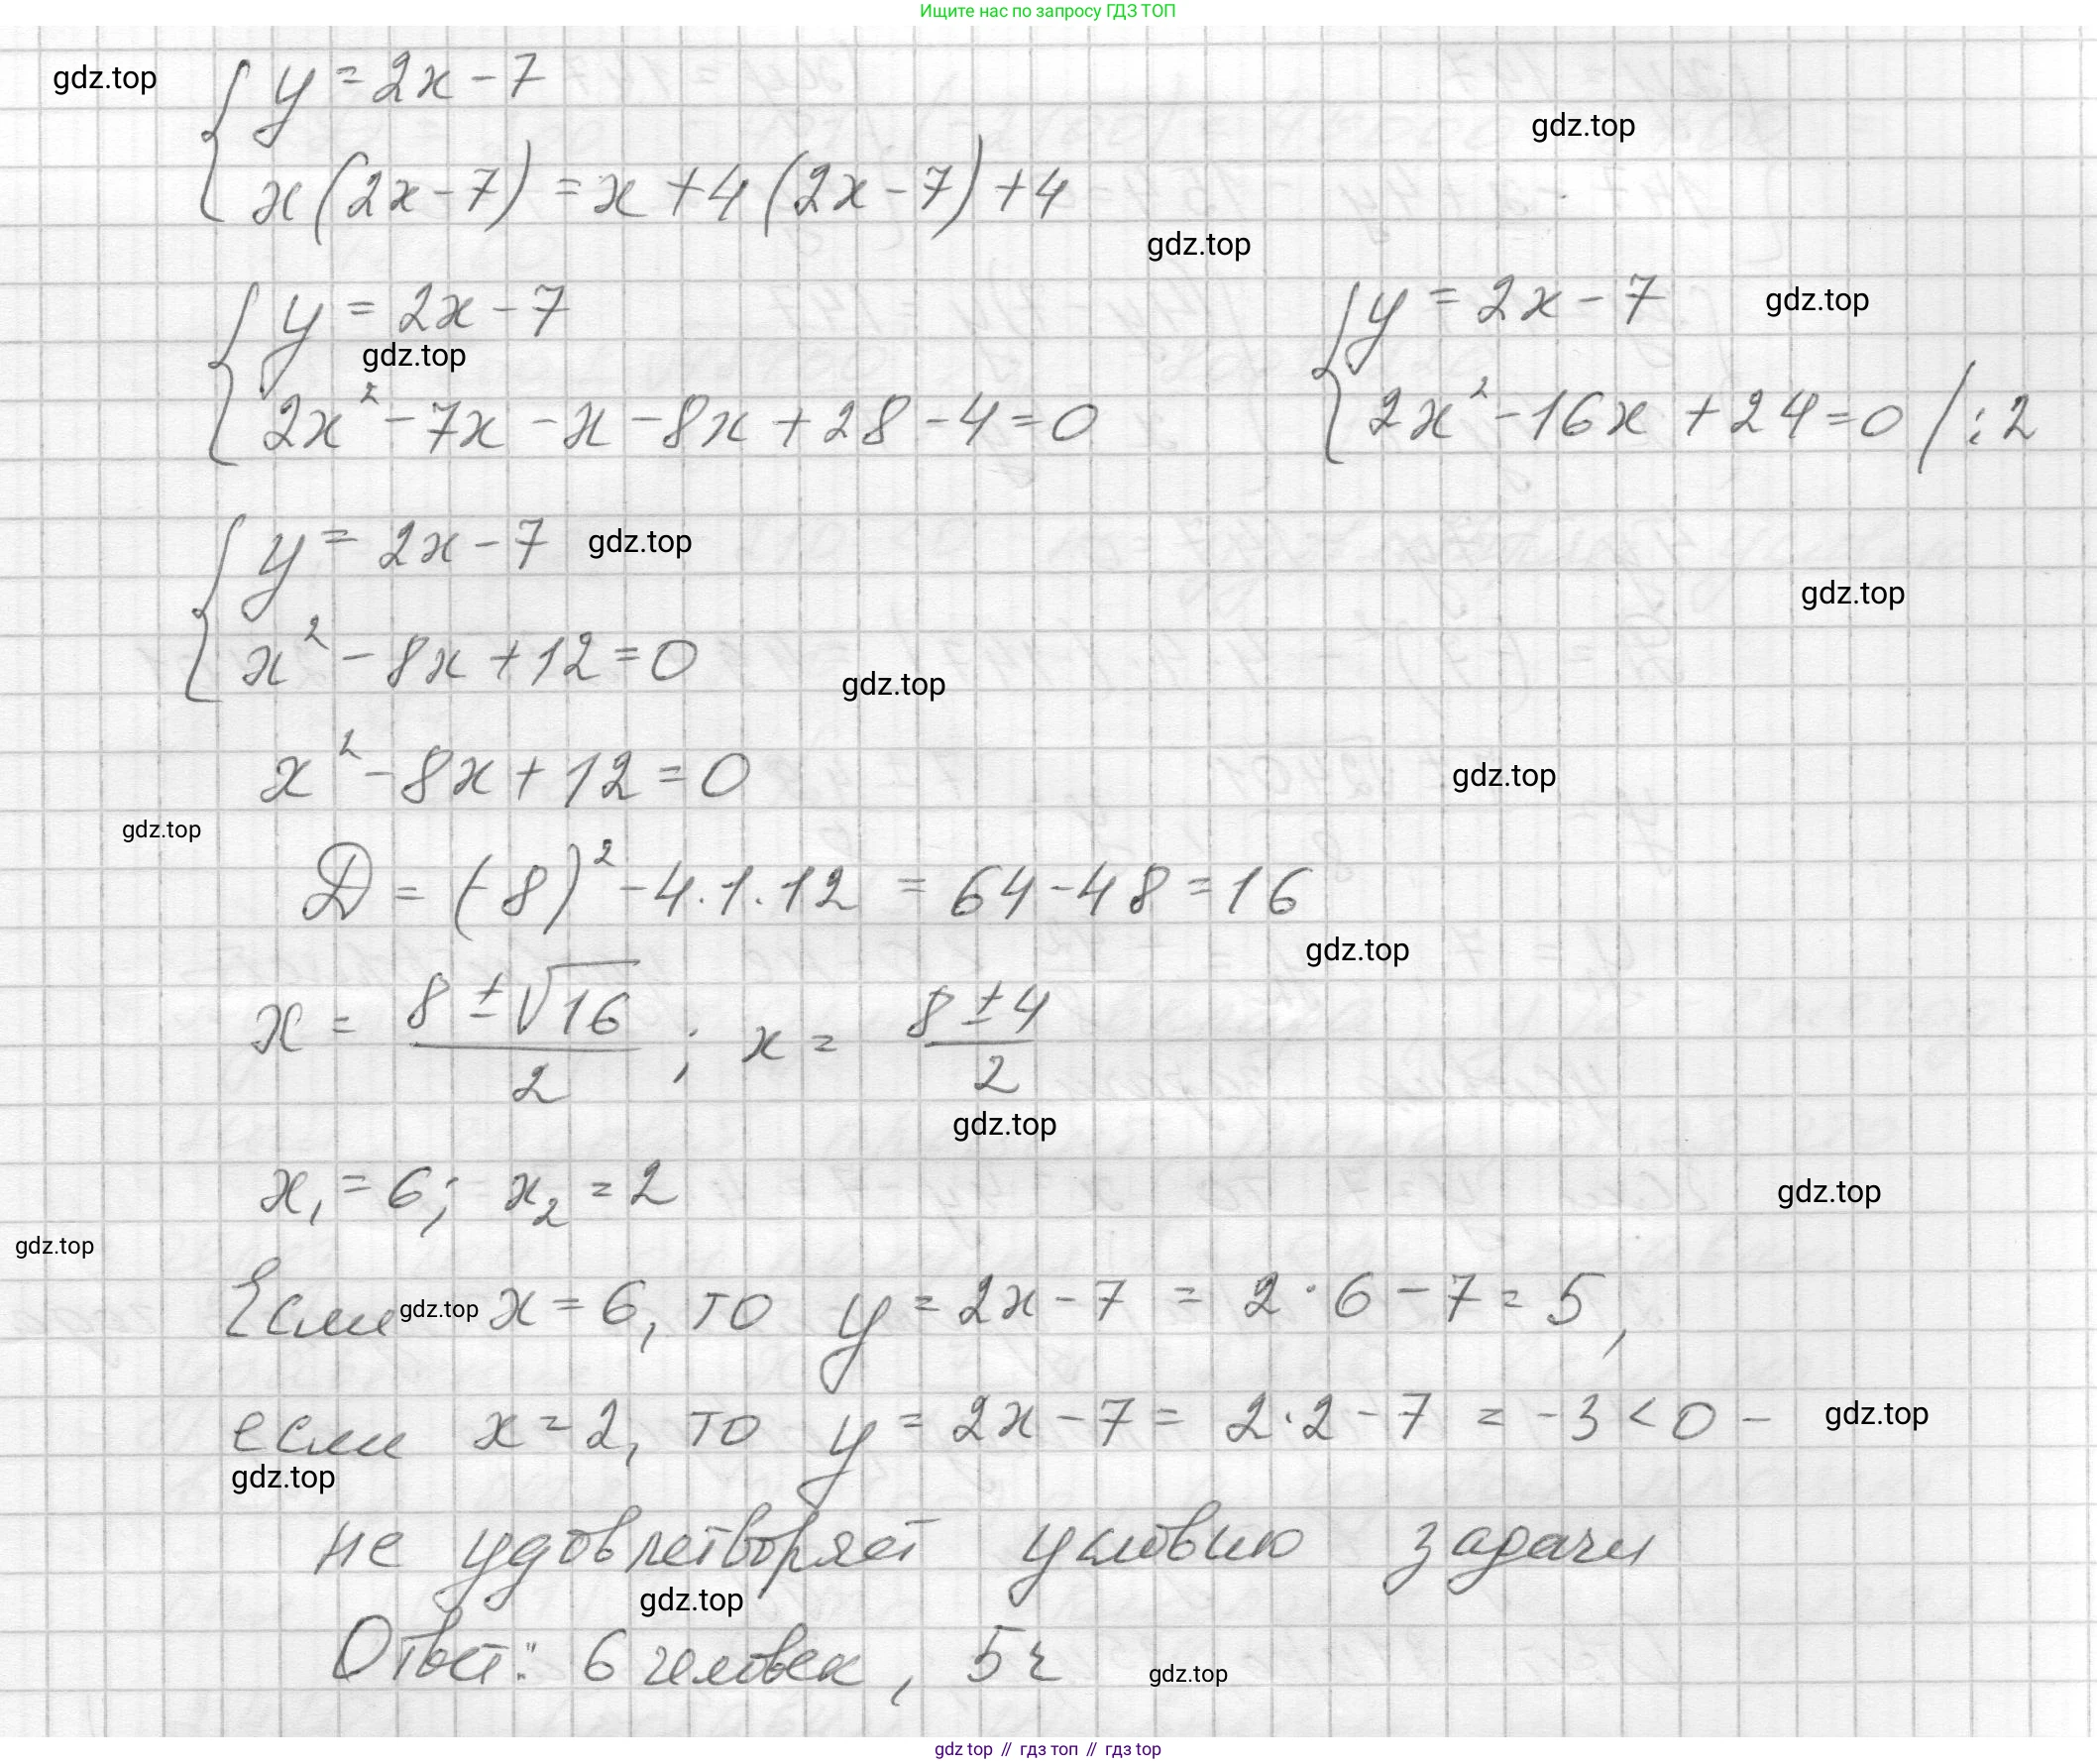 Ищите нас по запросу ГДЗ ТОП
gdz.top
y = 2x - 7
gdz.top
x(2x - 7) = x + 4(2x - 7) + 4
gdz.top
y = 2x - 7
y = 2x - 7
gdz.top
gdz.top
2x² - 7x - x - 8x + 28 - 4 = 0
2x² - 16x + 24 = 0 / : 2
y = 2x - 7
gdz.top
gdz.top
x² - 8x + 12 = 0
gdz.top
x² - 8x + 12 = 0
gdz.top
gdz.top
D = (-8)² - 4·1·12 = 64 - 48 = 16
gdz.top
x = (8 ± √16)/2 ; x = (8 ± 4)/2
gdz.top
x₁ = 6; x₂ = 2
gdz.top
gdz.top
Если gdz.top x = 6, то y = 2x - 7 = 2·6 - 7 = 5,
если x = 2, то y = 2x - 7 = 2·2 - 7 = -3 < 0 -
gdz.top
gdz.top
не удовлетворяет условию задачи
gdz.top
Ответ: 6 человек, 5 ч
gdz.top
gdz top // гдз топ // gdz top